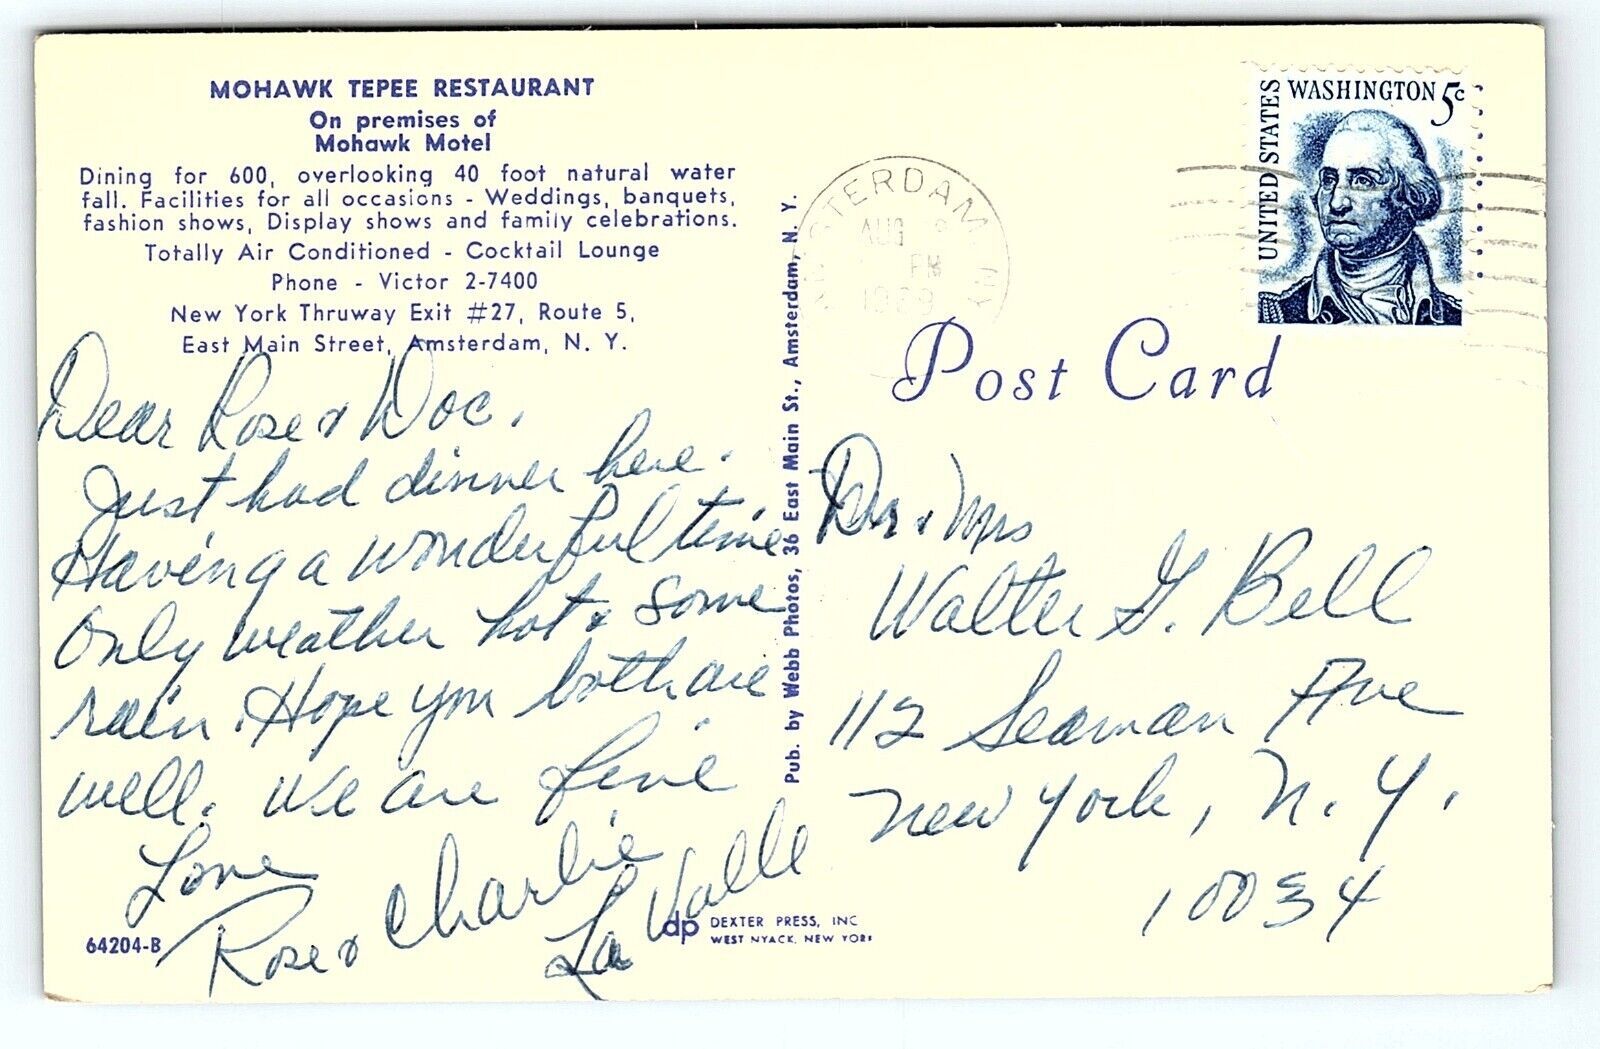 MOHAWK TEPEE RESTAURANT
On premises of
Mohawk Motel
Dining for 600, overlooking 40 foot natural water
fall. Facilities for all occasions - Weddings, banquets,
fashion shows, Display shows and family celebrations.
Totally Air Conditioned - Cocktail Lounge
Phone - Victor 2-7400
New York Thruway Exit #27, Route 5,
East Main Street, Amsterdam, N. Y.
Dear Rose & Doc.
Just had dinner here.
Having a wonderful time
Only weather hot & some
rain. Hope you both are
well. We are fine
Love
Rose & Charlie
La Valle
64204-B
dp DEXTER PRESS, INC
WEST NYACK, NEW YORK
Pub. by Webb Photos, 36 East Main St., Amsterdam, N. Y.
AUG
PM
UNITED STATES
WASHINGTON 5c
Post Card
Dr & Mrs
Walter G. Bell
112 Seaman Ave
New York, N. Y.
10034